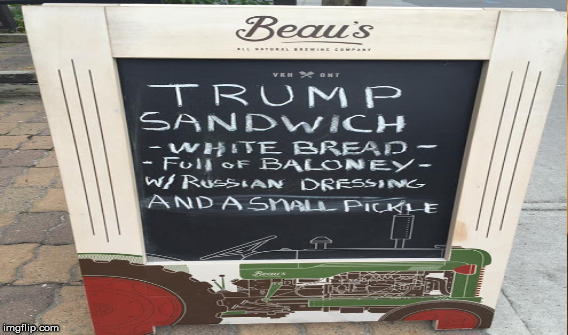 Beau's
ALL NATURAL BREWING COMPANY
VKH ONT
TRUMP
SANDWICH
-WHITE BREAD-
-FULL OF BALONEY-
W/ RUSSIAN DRESSING
AND A SMALL PICKLE
Beau's
imgflip.com